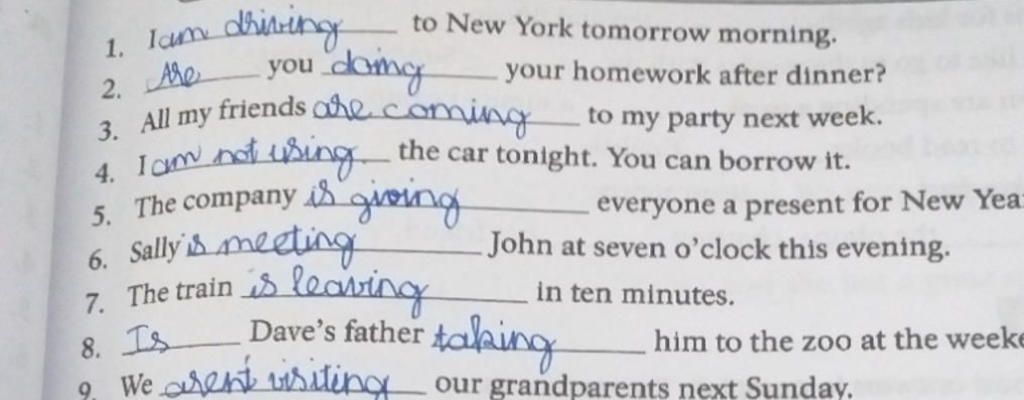 1. I am driving to New York tomorrow morning.
2. Are you doing your homework after dinner?
3. All my friends are coming to my party next week.
4. I am not using the car tonight. You can borrow it.
5. The company is giving everyone a present for New Yea
6. Sally is meeting John at seven o'clock this evening.
7. The train is leaving in ten minutes.
8. Is Dave's father taking him to the zoo at the weeke
9. We arent visiting our grandparents next Sunday.